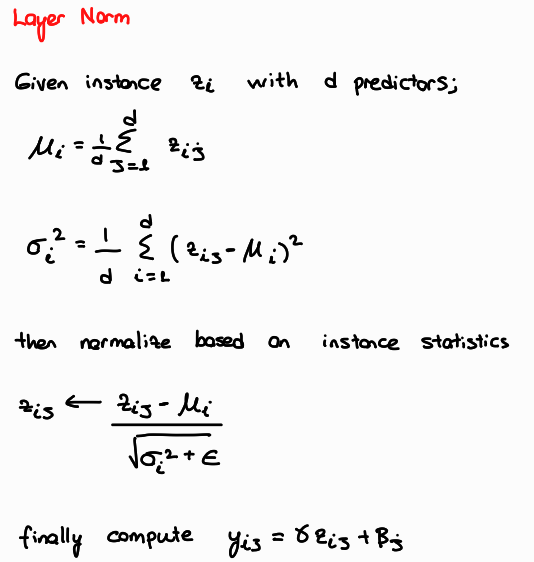 Layer Norm
Given instance zᵢ with d predictors;
μᵢ = 1/d Σ_{j=1}^{d} zᵢⱼ
σᵢ² = 1/d Σ_{i=1}^{d} (zᵢⱼ - μᵢ)²
then normalize based on instance statistics
zᵢⱼ ← (zᵢⱼ - μᵢ) / √(σᵢ² + ϵ)
finally compute yᵢⱼ = γ zᵢⱼ + βⱼ